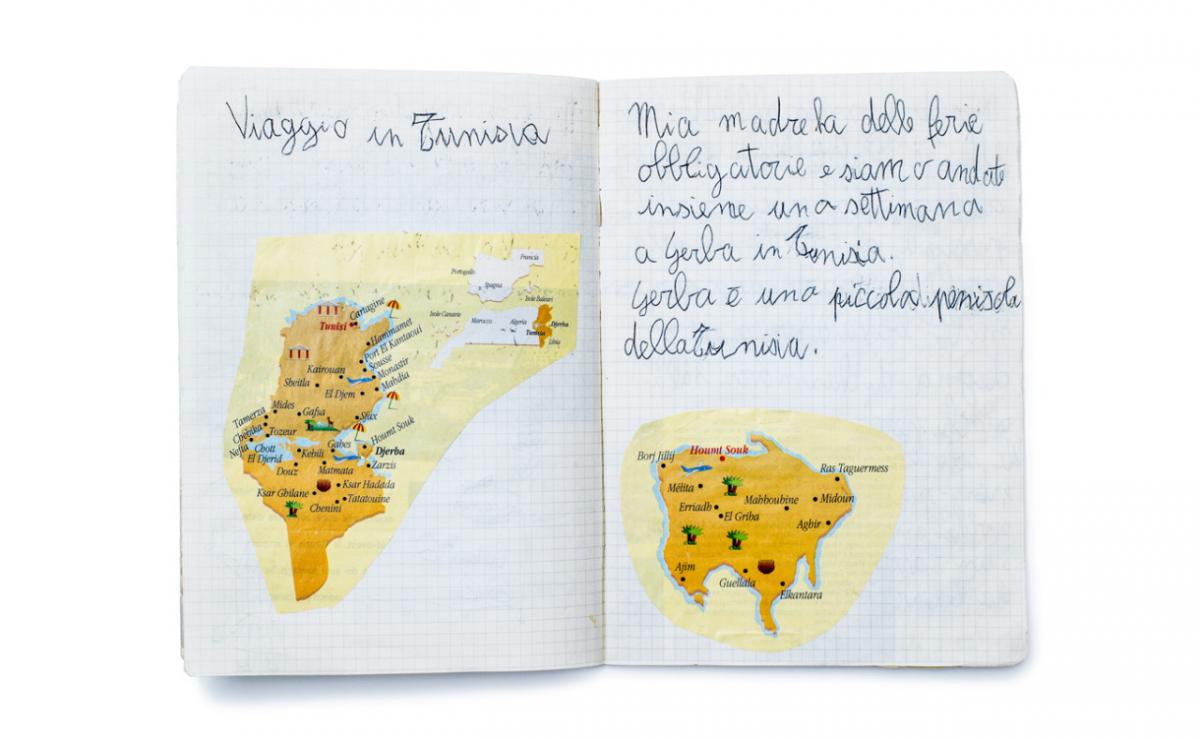 Viaggio in Tunisia
Francia
Portogallo
Spagna
Isole Baleari
Isole Canarie
Marocco
Algeria
Djerba
Tunisia
Libia
Cartagine
Tunisi
Hammamet
Port El Kantaoui
Sousse
Kairouan
Monastir
Sbeitla
Mahdia
El Djem
Mides
Gafsa
Sfax
Tamerza
Chebika
Tozeur
Nefta
Gabes
Houmt Souk
Chott
El Djerid
Kebili
Djerba
Douz
Matmata
Zarzis
Ksar Ghilane
Ksar Hadada
Tatatouine
Chenini
Mia madre ha delle ferie
obbligatorie e siamo andate
insieme una settimana
a Gerba in Tunisia.
Gerba è una piccola penisola
della Tunisia.
Borj Jillij
Houmt Souk
Ras Taguermess
Mélita
Mahboubine
Midoun
Erriadh
El Griba
Aghir
Ajim
Guellala
Elkantara